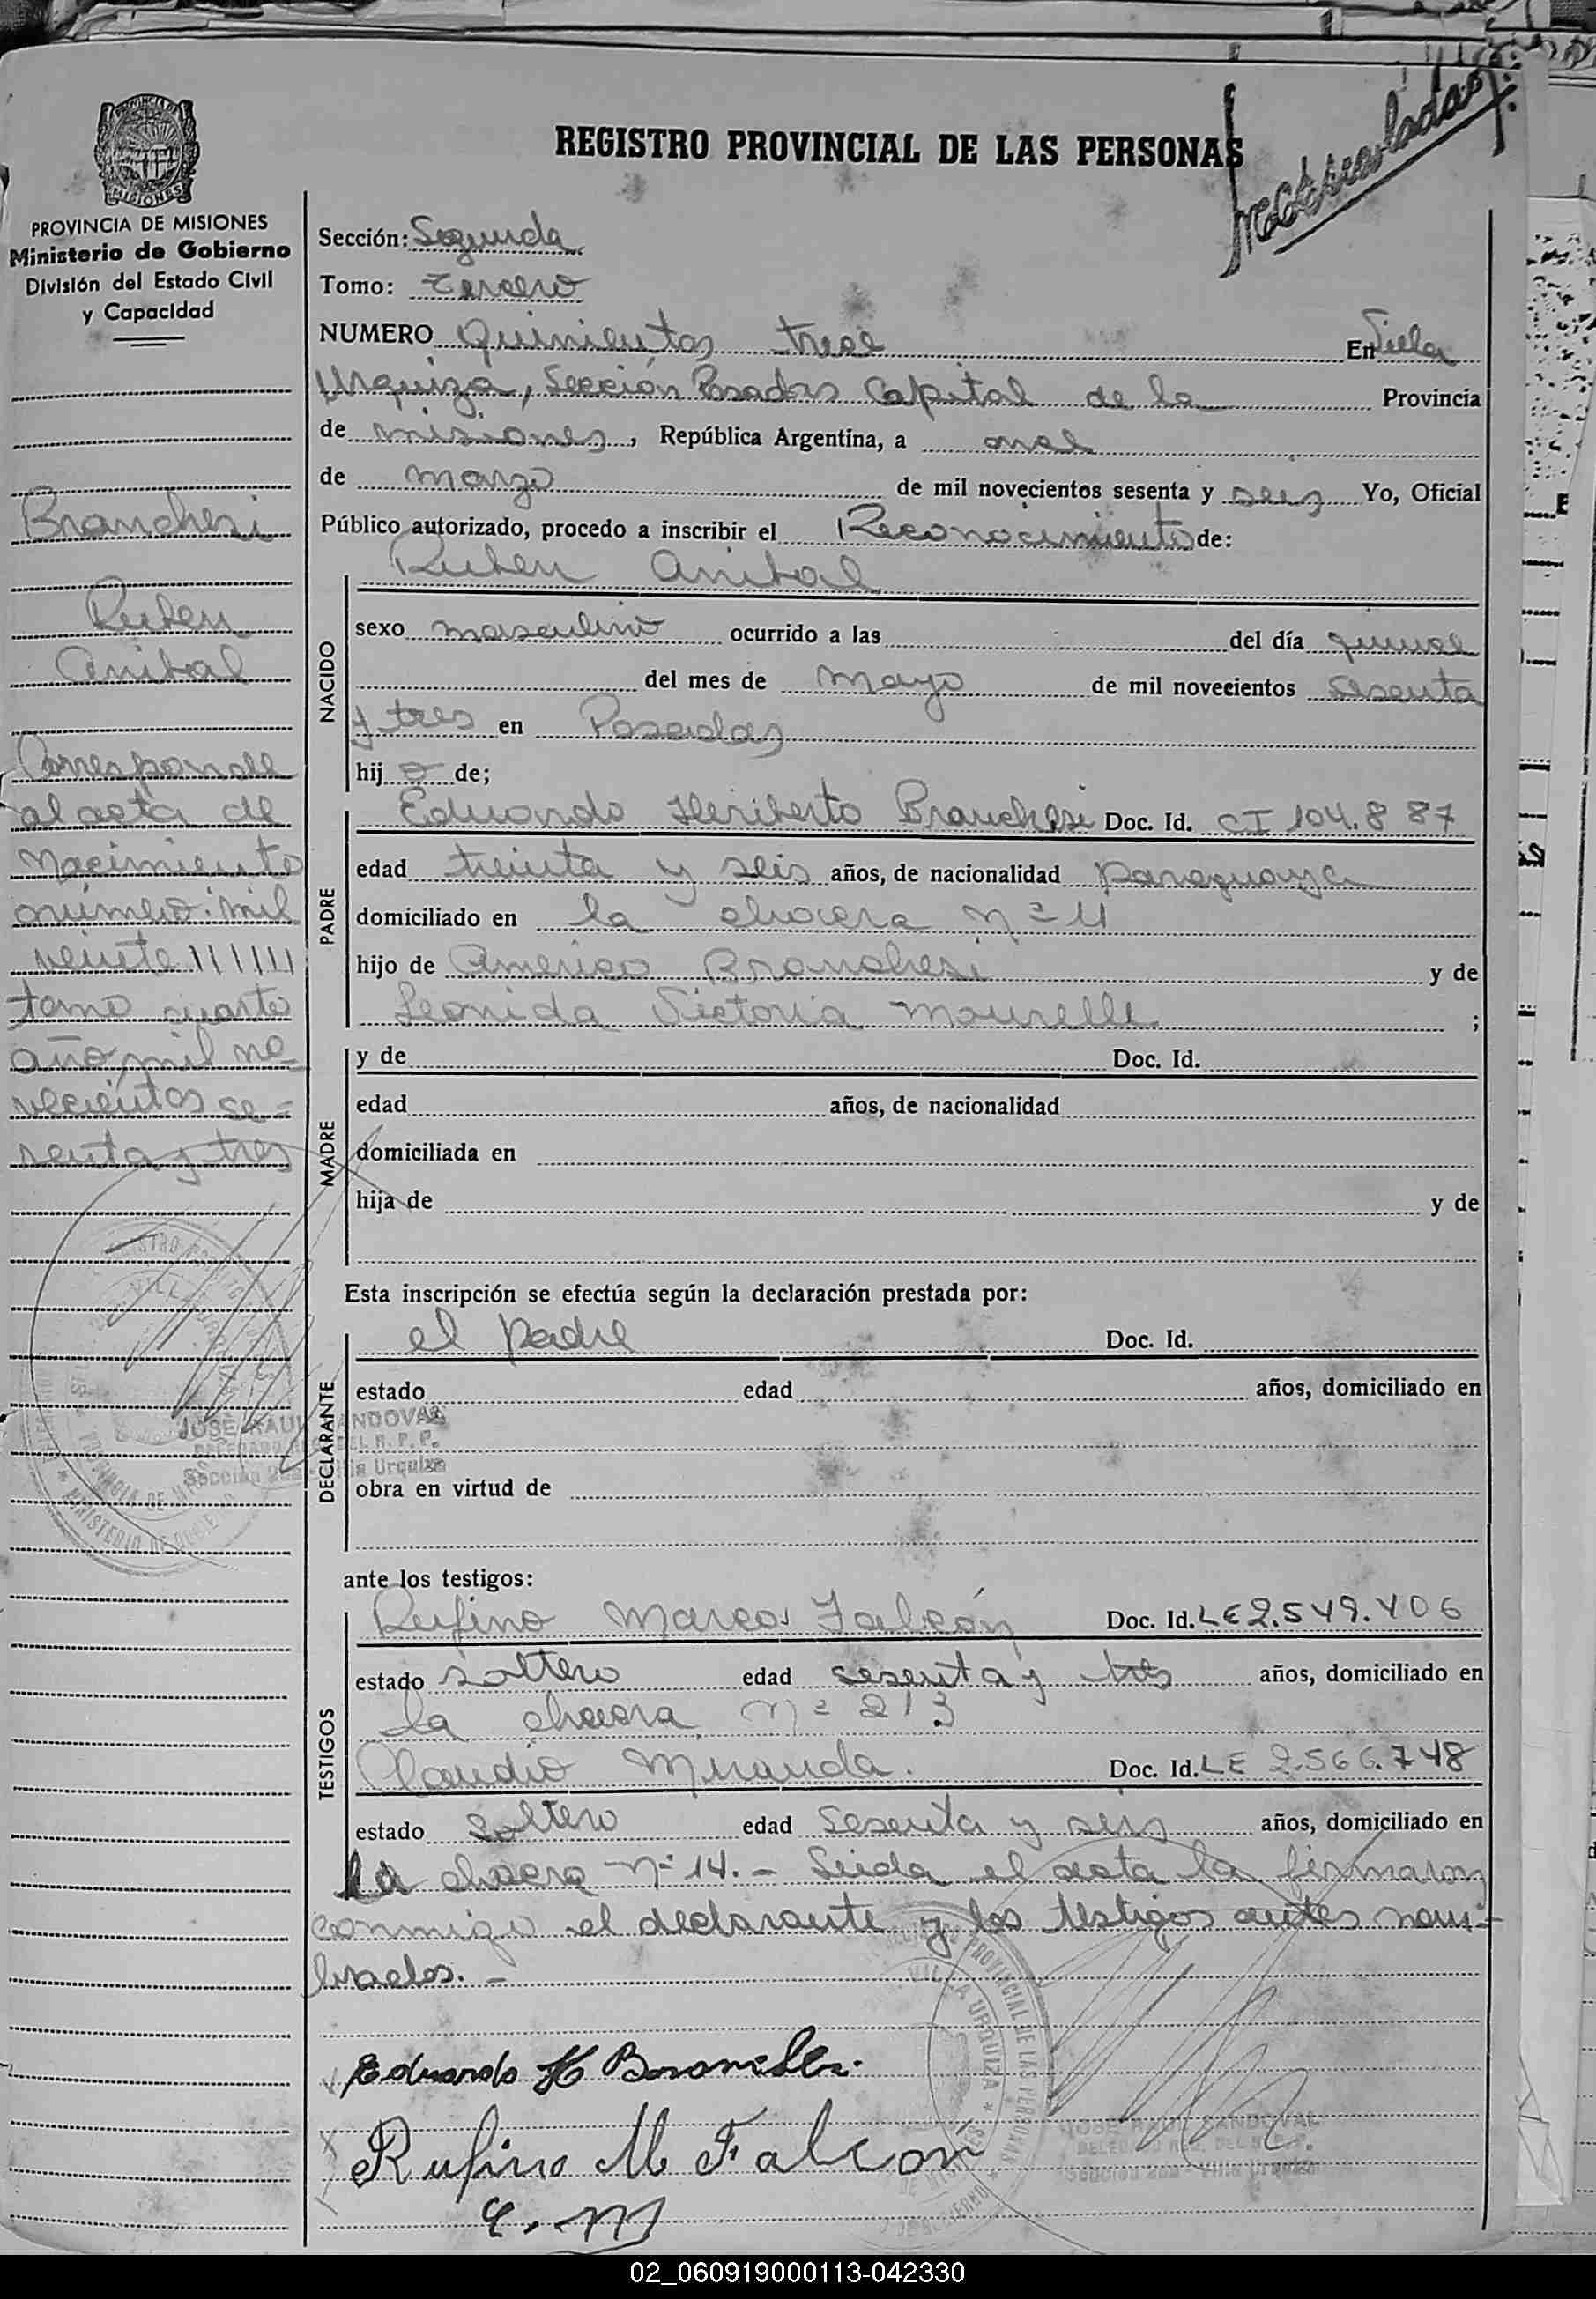 REGISTRO PROVINCIAL DE LAS PERSONAS
PROVINCIA DE MISIONES
Ministerio de Gobierno
División del Estado Civil
y Capacidad
Branchesi
Ruben
Anibal
Corresponde
al acta de
nacimiento
número: mil
veinte
tomo cuarto
año mil no-
vecientos se-
senta y tres
Sección: Segunda
Tomo: Tercero
NUMERO Quinientos trece En Villa
Urquiza, Sección Posadas Capital de la Provincia
de misiones, República Argentina, a once
de marzo de mil novecientos sesenta y seis Yo, Oficial
Público autorizado, procedo a inscribir el Reconocimiento de:
NACIDO
Ruben Anibal
sexo masculino ocurrido a las del día quince
del mes de mayo de mil novecientos sesenta
y tres en Posadas
hijo de;
PADRE
Eduardo Heriberto Branchesi Doc. Id. CI 104.887
edad treinta y seis años, de nacionalidad paraguaya
domiciliado en la chacra nº 11
hijo de Americo Branchesi y de
Leonida Victoria Mourelle ;
MADRE
y de Doc. Id.
edad años, de nacionalidad
domiciliada en
hija de y de
Esta inscripción se efectúa según la declaración prestada por:
DECLARANTE
el padre Doc. Id.
estado edad años, domiciliado en
obra en virtud de
JOSE RAUL SANDOVAL
DEL R. P. P.
Sección 2da - Villa Urquiza
ante los testigos:
TESTIGOS
Rufino Marcos Falcón Doc. Id. LE 2.549.406
estado soltero edad sesenta y tres años, domiciliado en
la chacra nº 213
Claudio Miranda. Doc. Id. LE 2.566.748
estado soltero edad sesenta y seis años, domiciliado en
la chacra nº 14.- Leida el acta la firmaron
conmigo el declarante y los testigos antes nom-
brados.-
Eduardo H Branchesi.
Rufino M Falcon
C. M
VILLA URQUIZA
PROVINCIAL DE LAS PERSONAS
JOSE RAUL SANDOVAL
Sección 2da - Villa Urquiza
02_060919000113-042330